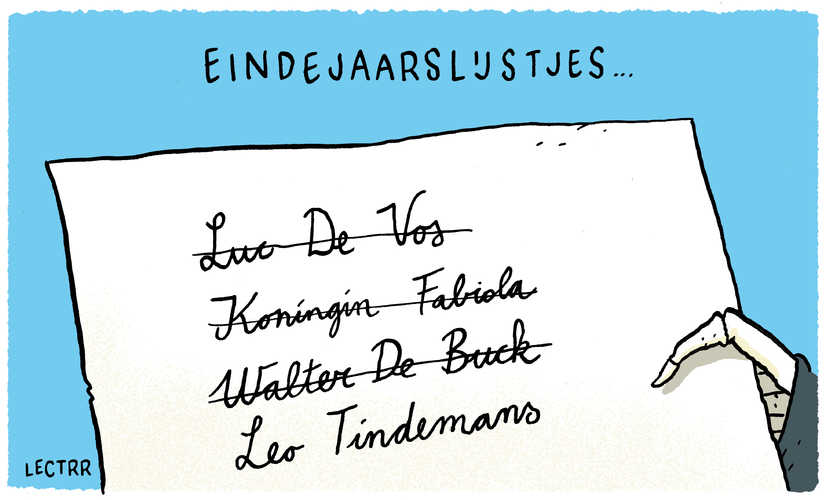 EINDEJAARSLIJSTJES...
Luc De Vos
Koningin Fabiola
Walter De Buck
Leo Tindemans
LECTRR